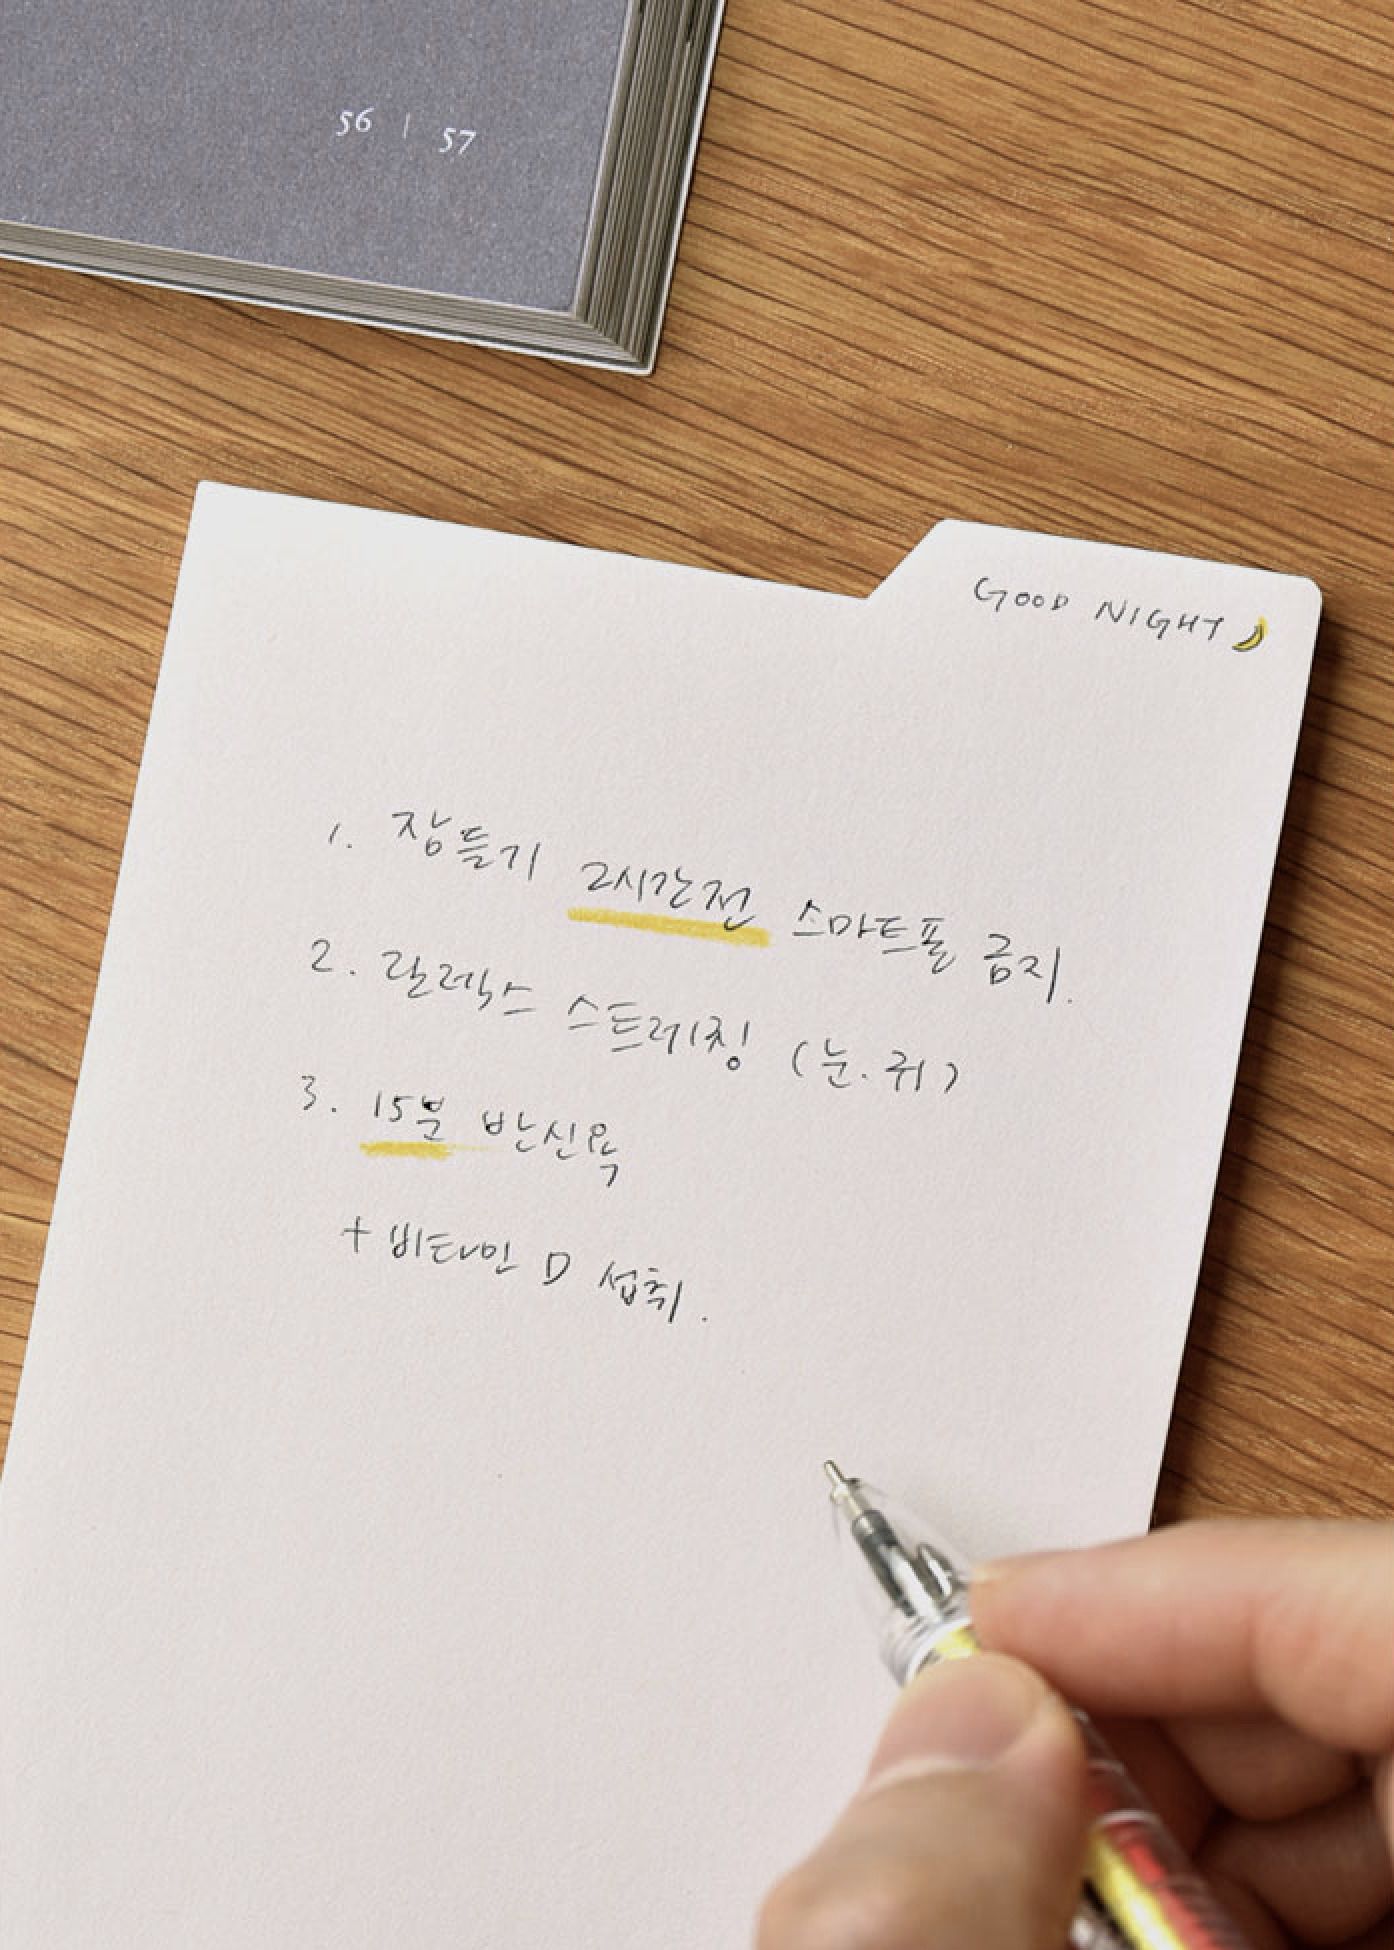 56 | 57
GOOD NIGHT
1. 잠들기 2시간전 스마트폰 금지.
2. 릴렉스 스트레칭 (눈.귀)
3. 15분 반신욕
+ 비타민 D 섭취.